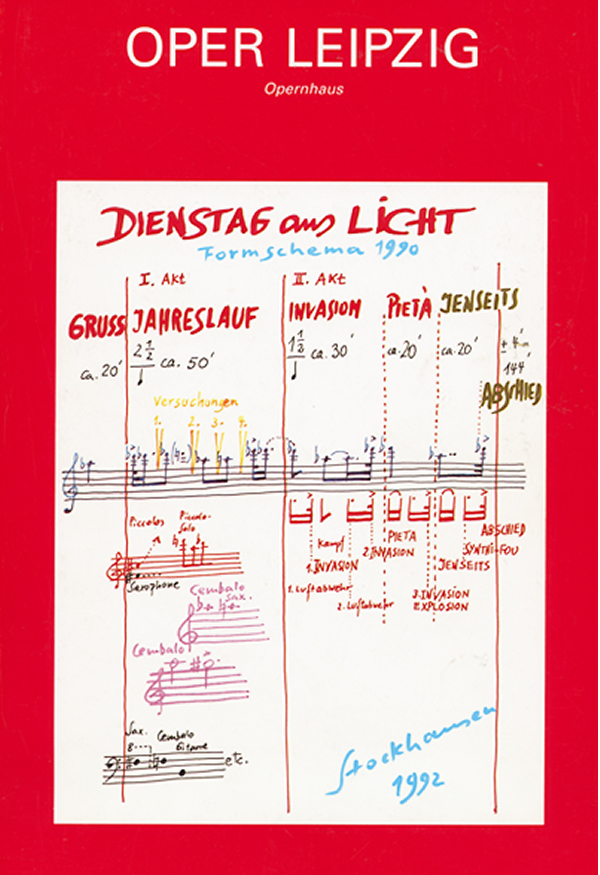 OPER LEIPZIG
Opernhaus
DIENSTAG aus LICHT
Formschema 1990
I. Akt
II. Akt
GRUSS JAHRESLAUF INVASION PIETÀ JENSEITS
ca. 20' 2 1/2 ca. 50' 1 1/3 ca. 30' ca. 20' ca. 20' ± 4'
144'
ABSCHIED
Versuchungen
1. 2. 3. 4.
Piccolos Piccolo-
Solo
Saxophone
Kampf
1. INVASION
2. INVASION
PIETA
ABSCHIED
SYNTHI-FOU
JENSEITS
1. Luftabwehr
2. Luftabwehr
3. INVASION
EXPLOSION
Cembalo
Sax.
Cembalo
Sax. Cembalo
8 Gitarre
etc.
Stockhausen
1992